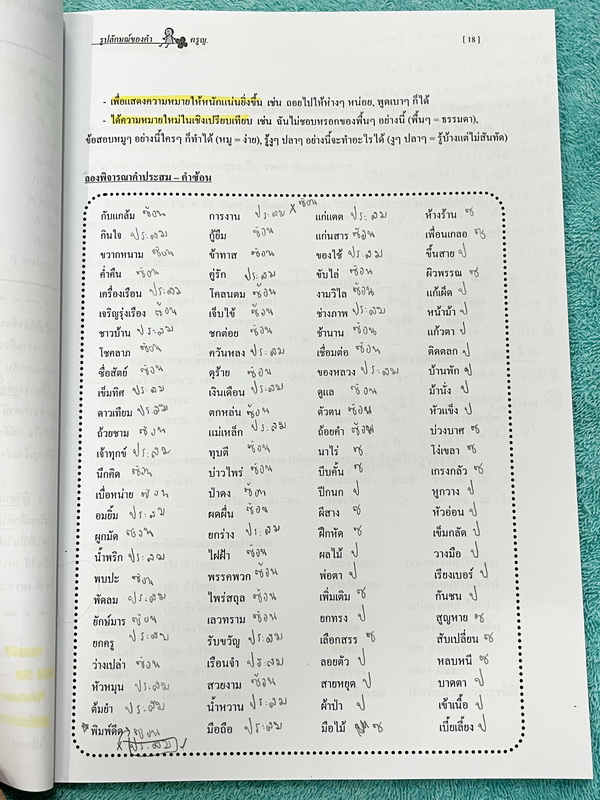 รูปลักษณ์ของคำ ครูญ. [ 18 ]
- เพื่อแสดงความหมายให้หนักแน่นยิ่งขึ้น เช่น ถอยไปให้ห่างๆ หน่อย, พูดเบาๆ ก็ได้
- ได้ความหมายใหม่ในเชิงเปรียบเทียบ เช่น ฉันไม่ชอบหรอกของพื้นๆ อย่างนี้ (พื้นๆ = ธรรมดา),
ข้อสอบหมูๆ อย่างนี้ใครๆ ก็ทำได้ (หมู = ง่าย), รู้งูๆ ปลาๆ อย่างนี้จะทำอะไรได้ (งูๆ ปลาๆ = รู้บ้างแต่ไม่สันทัด)
ลองพิจารณาคำประสม – คำซ้อน
กับแกล้ม ซ้อน การงาน ประสม X ซ้อน แก่แดด ประสม ห้างร้าน ซ
กินใจ ประสม กู้ยืม ซ้อน แก่นสาร ซ้อน เพื่อนเกลอ ซ
ขวากหนาม ซ้อน ข้าทาส ซ้อน ของใช้ ประสม ขึ้นสาย ป
ค่ำคืน ซ้อน คู่รัก ประสม ขับไล่ ซ้อน ผิวพรรณ ซ
เครื่องเรือน ประสม โคลนตม ซ้อน งามวิไล ซ้อน แก้เผ็ด ป
เจริญรุ่งเรือง ซ้อน เจ็บไข้ ซ้อน ช่างภาพ ประสม หน้าม้า ป
ชาวบ้าน ประสม ชกต่อย ซ้อน ช้านาน ซ้อน แก้วตา ป
โชคลาภ ซ้อน ควันหลง ประสม เชื่อมต่อ ซ้อน ติดตลก ป
ซื่อสัตย์ ซ้อน ดุร้าย ซ้อน ของหลวง ประสม บ้านพัก ป
เข็มทิศ ประสม เงินเดือน ประสม ดูแล ซ้อน ม้านั่ง ป
ดาวเทียม ประสม ตกหล่น ซ้อน ตัวตน ซ้อน หัวแข็ง ป
ถ้วยชาม ซ้อน แม่เหล็ก ประสม ถ้อยคำ ซ้อน บ่วงบาศ ซ
เจ้าทุกข์ ประสม ทุบตี ซ้อน นาไร่ ซ โง่เขลา ซ
นึกคิด ซ้อน บ่าวไพร่ ซ้อน บีบคั้น ซ เกรงกลัว ซ
เบื่อหน่าย ซ้อน ป่าดง ซ้อน ปีกนก ป หูกวาง ป
อมยิ้ม ประสม ผดผื่น ซ้อน ผีสาง ซ หัวอ่อน ป
ผูกมัด ซ้อน ยกร่าง ประสม ฝึกหัด ซ เข็มกลัด ป
น้ำพริก ประสม ไฝฝ้า ซ้อน ผลไม้ ป วางมือ ป
พบปะ ซ้อน พรรคพวก ซ้อน พ่อตา ป เรียงเบอร์ ป
พัดลม ประสม ไพร่สถุล ซ้อน เพิ่มเติม ซ กันชน ป
ยักษ์มาร ซ้อน เลวทราม ซ้อน ยกทรง ป สูญหาย ซ
ยกครู ประสม รับขวัญ ประสม เลือกสรร ซ สับเปลี่ยน ซ
ว่างเปล่า ซ้อน เรือนจำ ประสม ลอยตัว ป หลบหนี ซ
หัวหมุน ประสม สวยงาม ซ้อน สายหยุด ป บาดตา ป
ต้มยำ ประสม น้ำหวาน ประสม ผ้าป่า ป เข้าเนื้อ ป
พิมพ์ดีด ซ้อน มือถือ ประสม มือไม้ ซ เบี้ยเลี้ยง ป
X ประสม